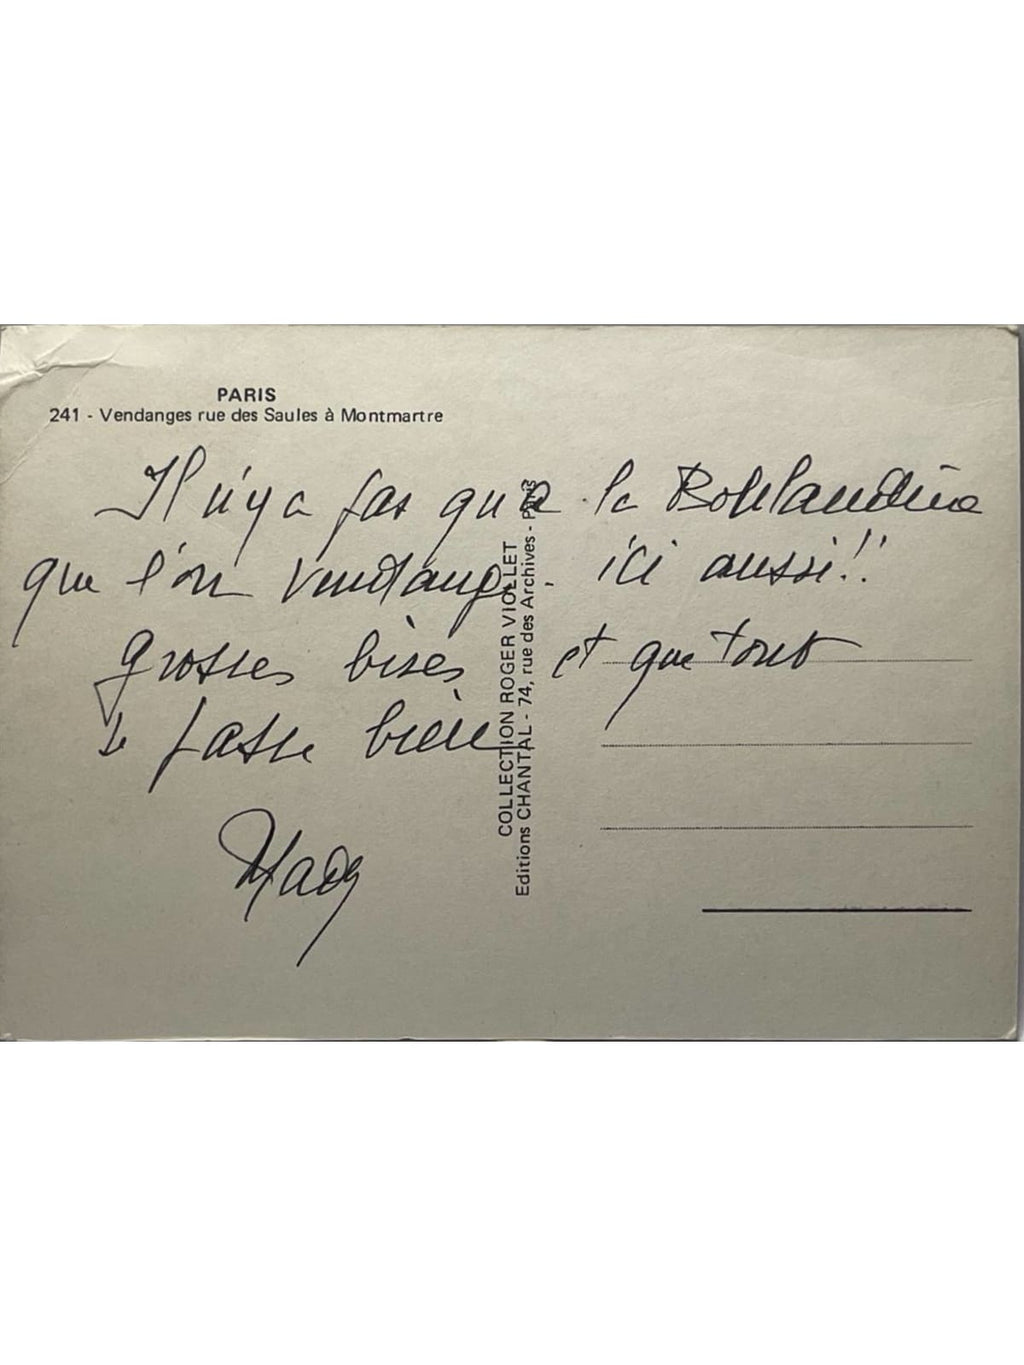 PARIS
241 - Vendanges rue des Saules à Montmartre
Il n'y a pas qu'à la
que l'on vendange - ici aussi!!
grosses bises et que tout
se passe bien
Mady
COLLECTION ROGER VIOLLET
Editions CHANTAL - 74, rue des Archives - PARIS